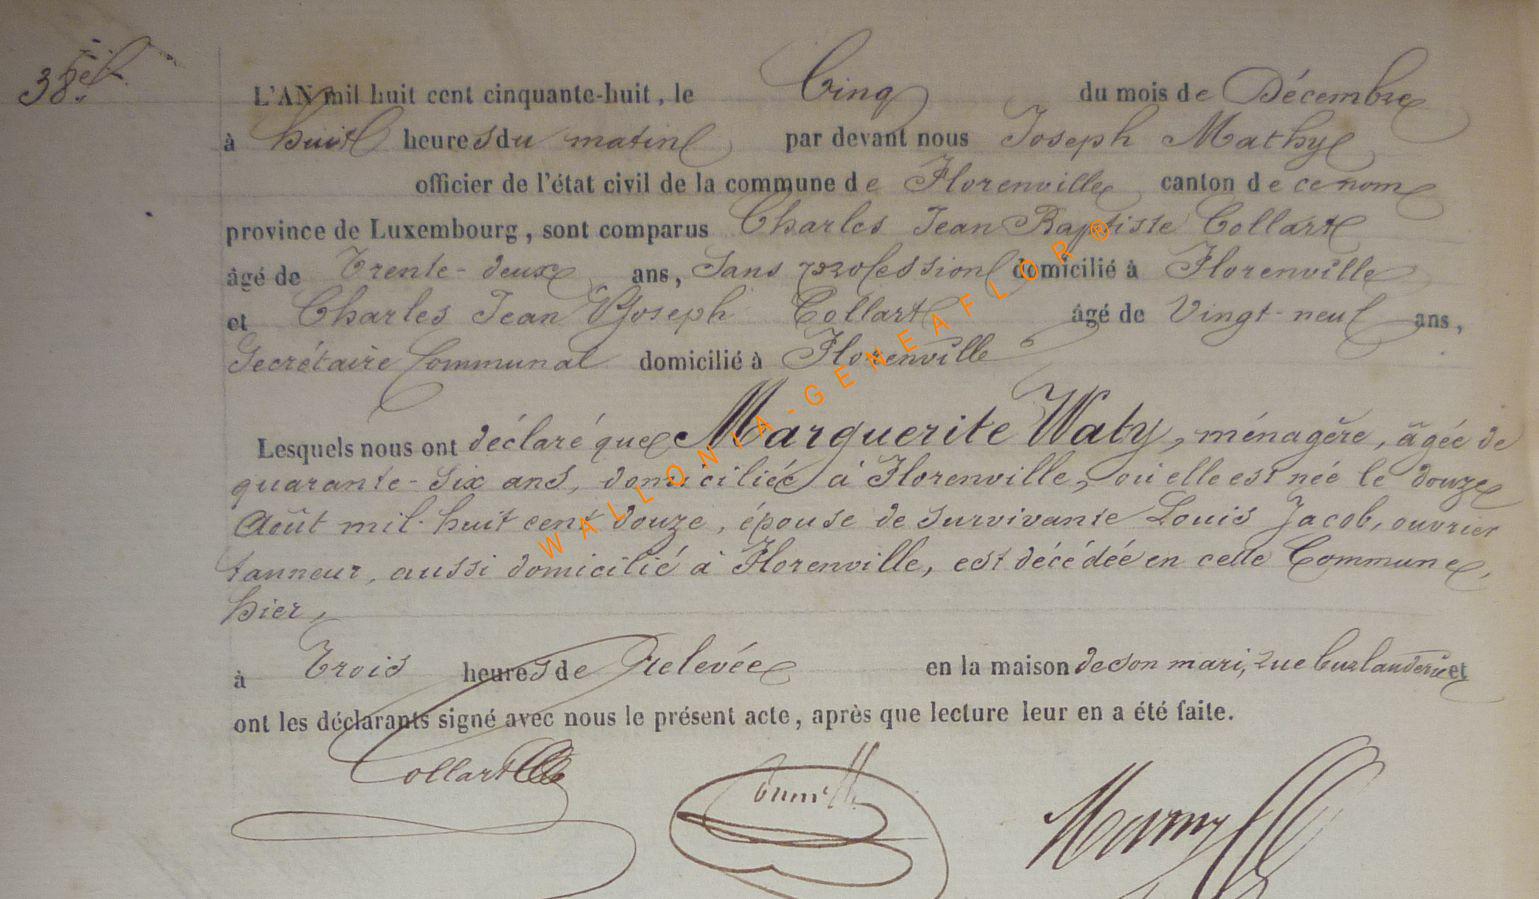 38.
L'AN mil huit cent cinquante-huit, le Cinq du mois de Décembre
à huit heures du matin par devant nous Joseph Mathy
officier de l'état civil de la commune de Florenville canton de ce nom
province de Luxembourg, sont comparus Charles Jean Baptiste Collart
âgé de Trente-deux ans, Sans profession domicilié à Florenville
et Charles Jean Joseph Collart âgé de Vingt-neuf ans,
Secrétaire Communal domicilié à Florenville
Lesquels nous ont déclaré que Marguerite Waty, ménagère, âgée de
quarante-six ans, domiciliée à Florenville, où elle est née le douze
Août mil-huit cent douze, épouse de survivante Louis Jacob, ouvrier
tanneur, aussi domicilié à Florenville, est décédée en cette Commune,
hier,
à Trois heures de Relevée en la maison de son mari, rue et
ont les déclarants signé avec nous le présent acte, après que lecture leur en a été faite.
Collart
WALLONIA-GENEAFLOR ®